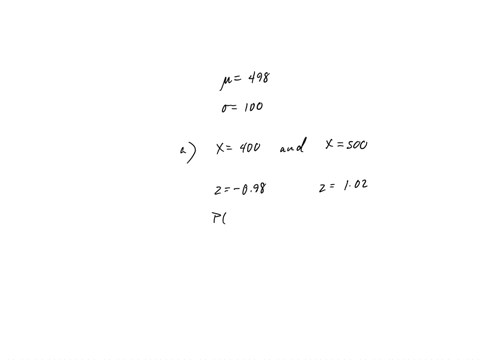 μ = 498
σ = 100
a) x = 400 and x = 500
z = -0.98 z = 1.02
P(